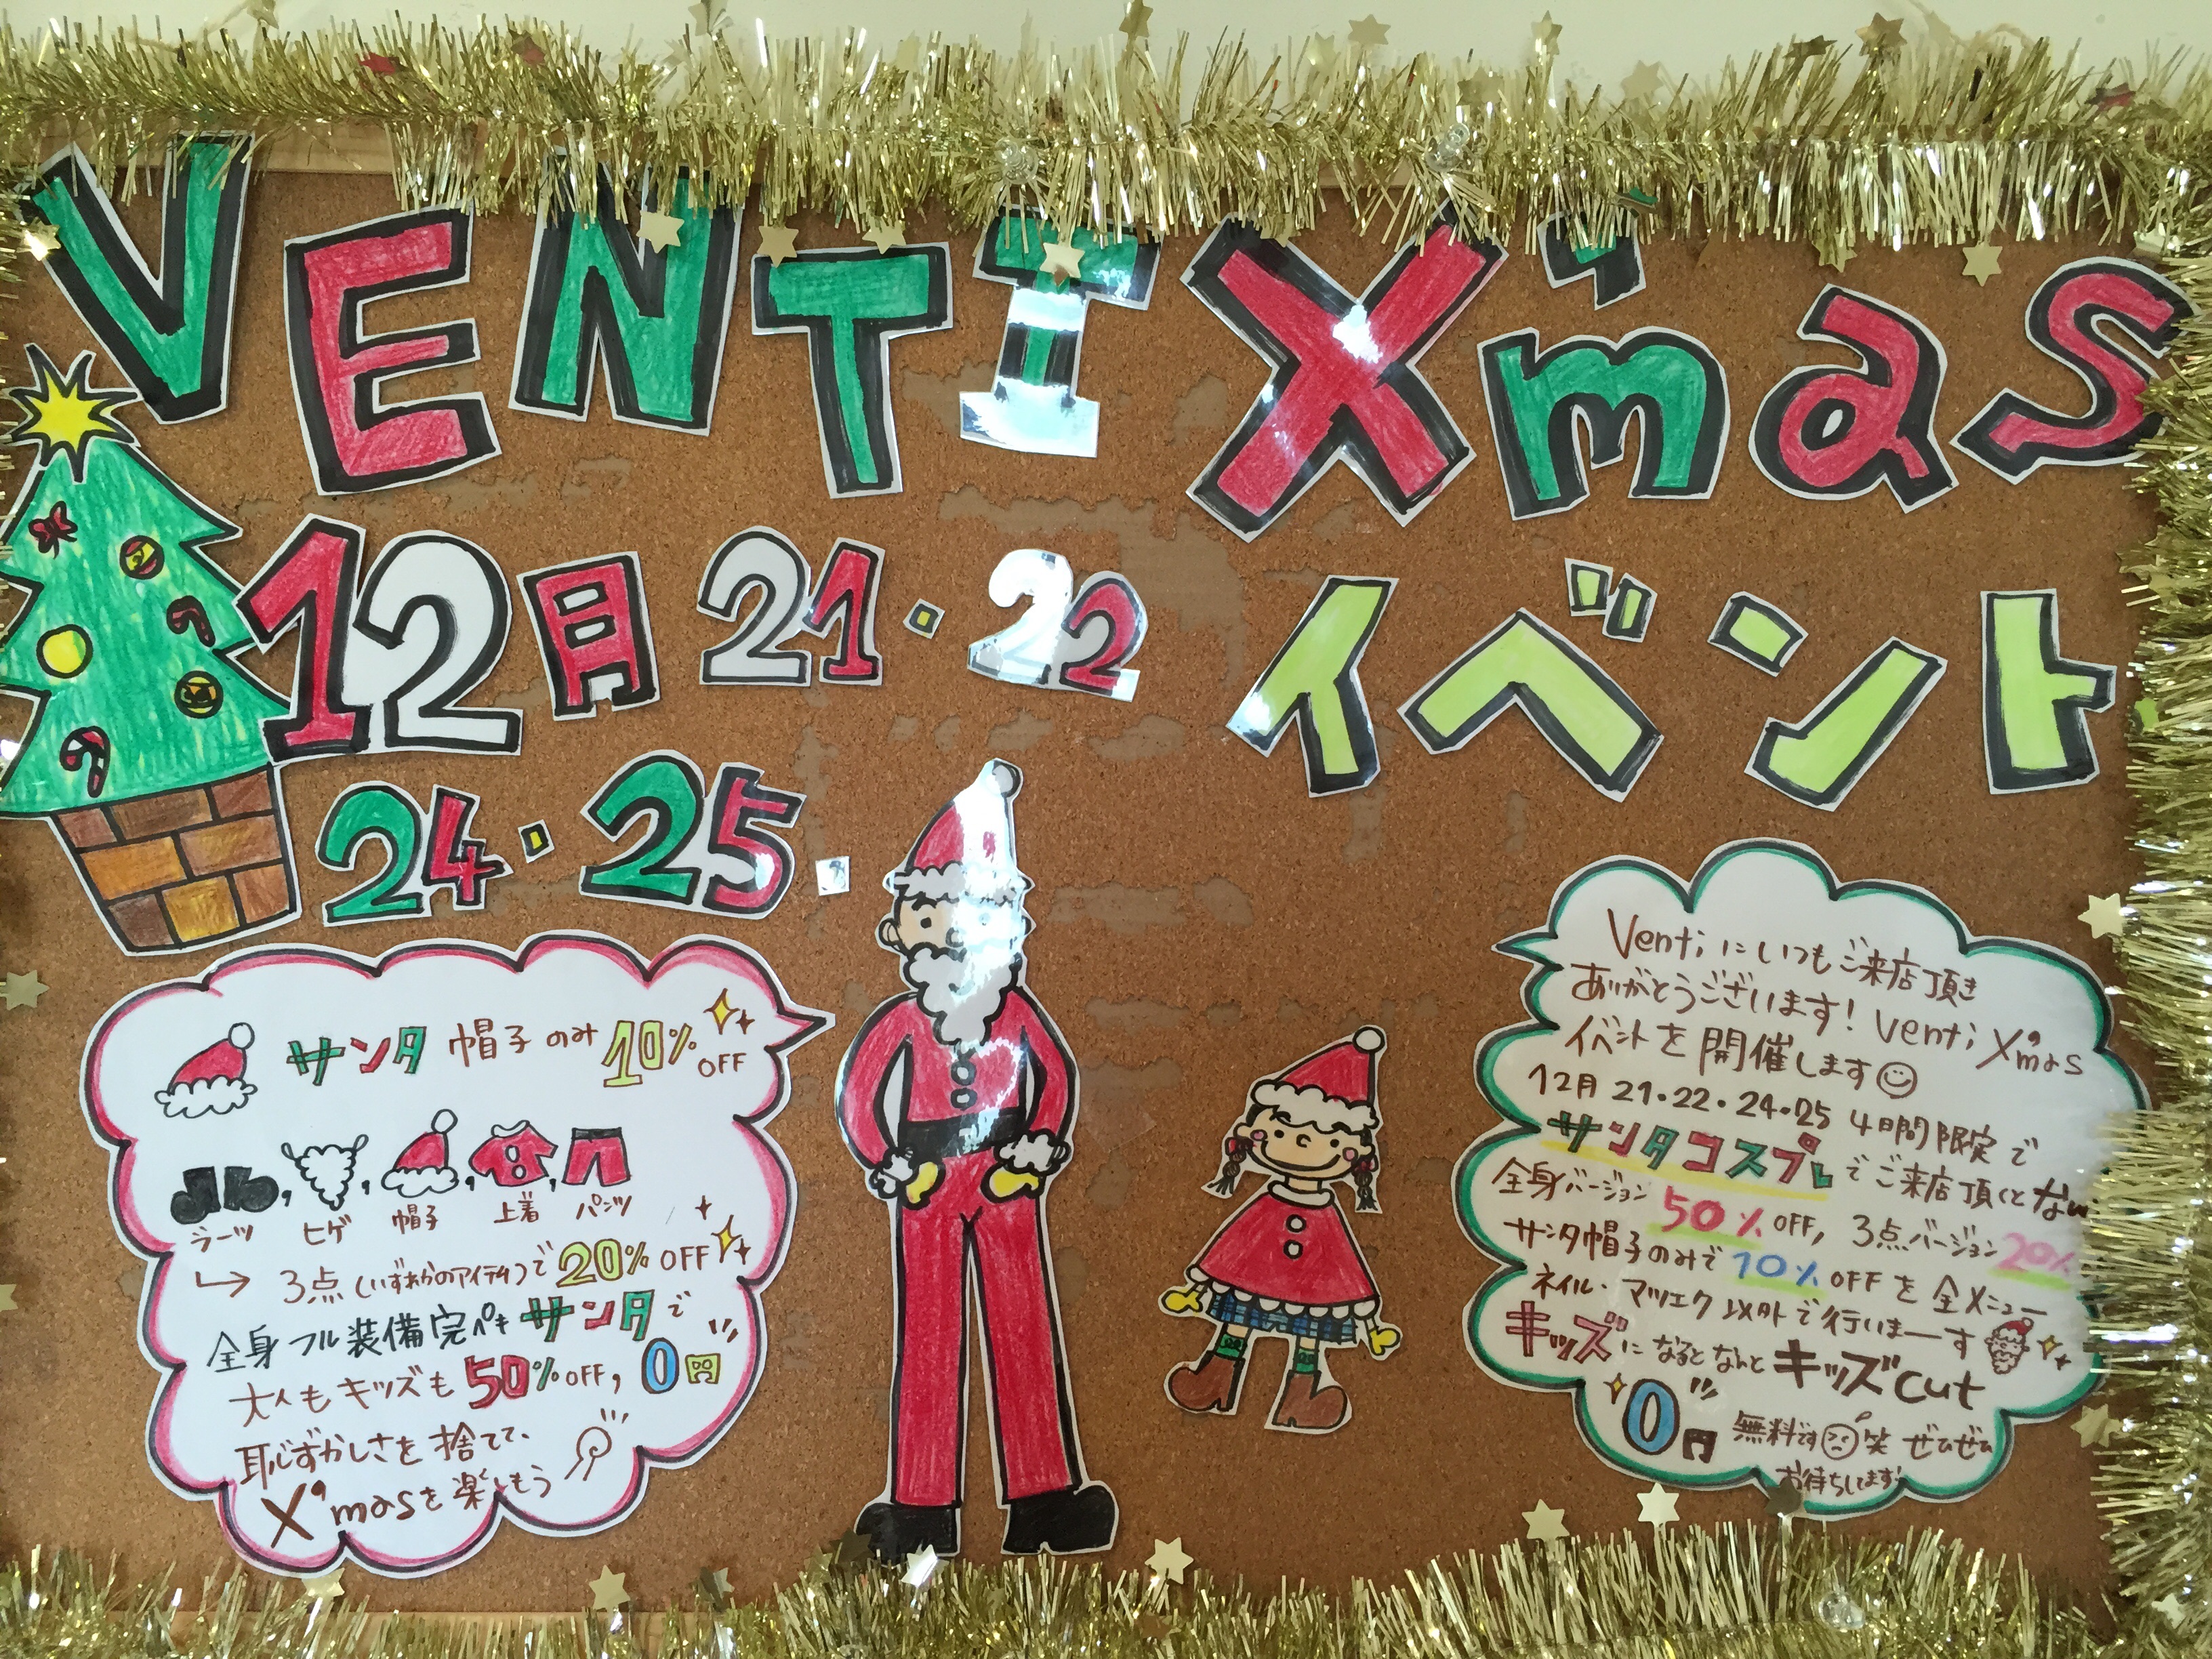 VENTI X'mas
12月 21・22
24・25.
イベント
サンタ 帽子のみ 10% OFF
ブーツ, ヒゲ, 帽子, 上着, パンツ
↳ 3点(いずれかのアイテム)で 20% OFF
全身フル装備完ペキ サンタで
大人もキッズも 50% OFF, 0円
恥ずかしさを捨てて、
X'masを楽しもう
Ventiにいつもご来店頂き
ありがとうございます! Venti X'mas
イベントを開催します
12月 21・22・24・25 4日間限定で
サンタコスプレでご来店頂くとなん
全身バージョン 50% OFF, 3点バージョン 20%
サンタ帽子のみで 10% OFFを全メニュー
ネイル・マツエク以外で行いまーす
キッズになるとなんと キッズcut
0円 無料です 笑 ぜひぜひ
お待ちしてます!